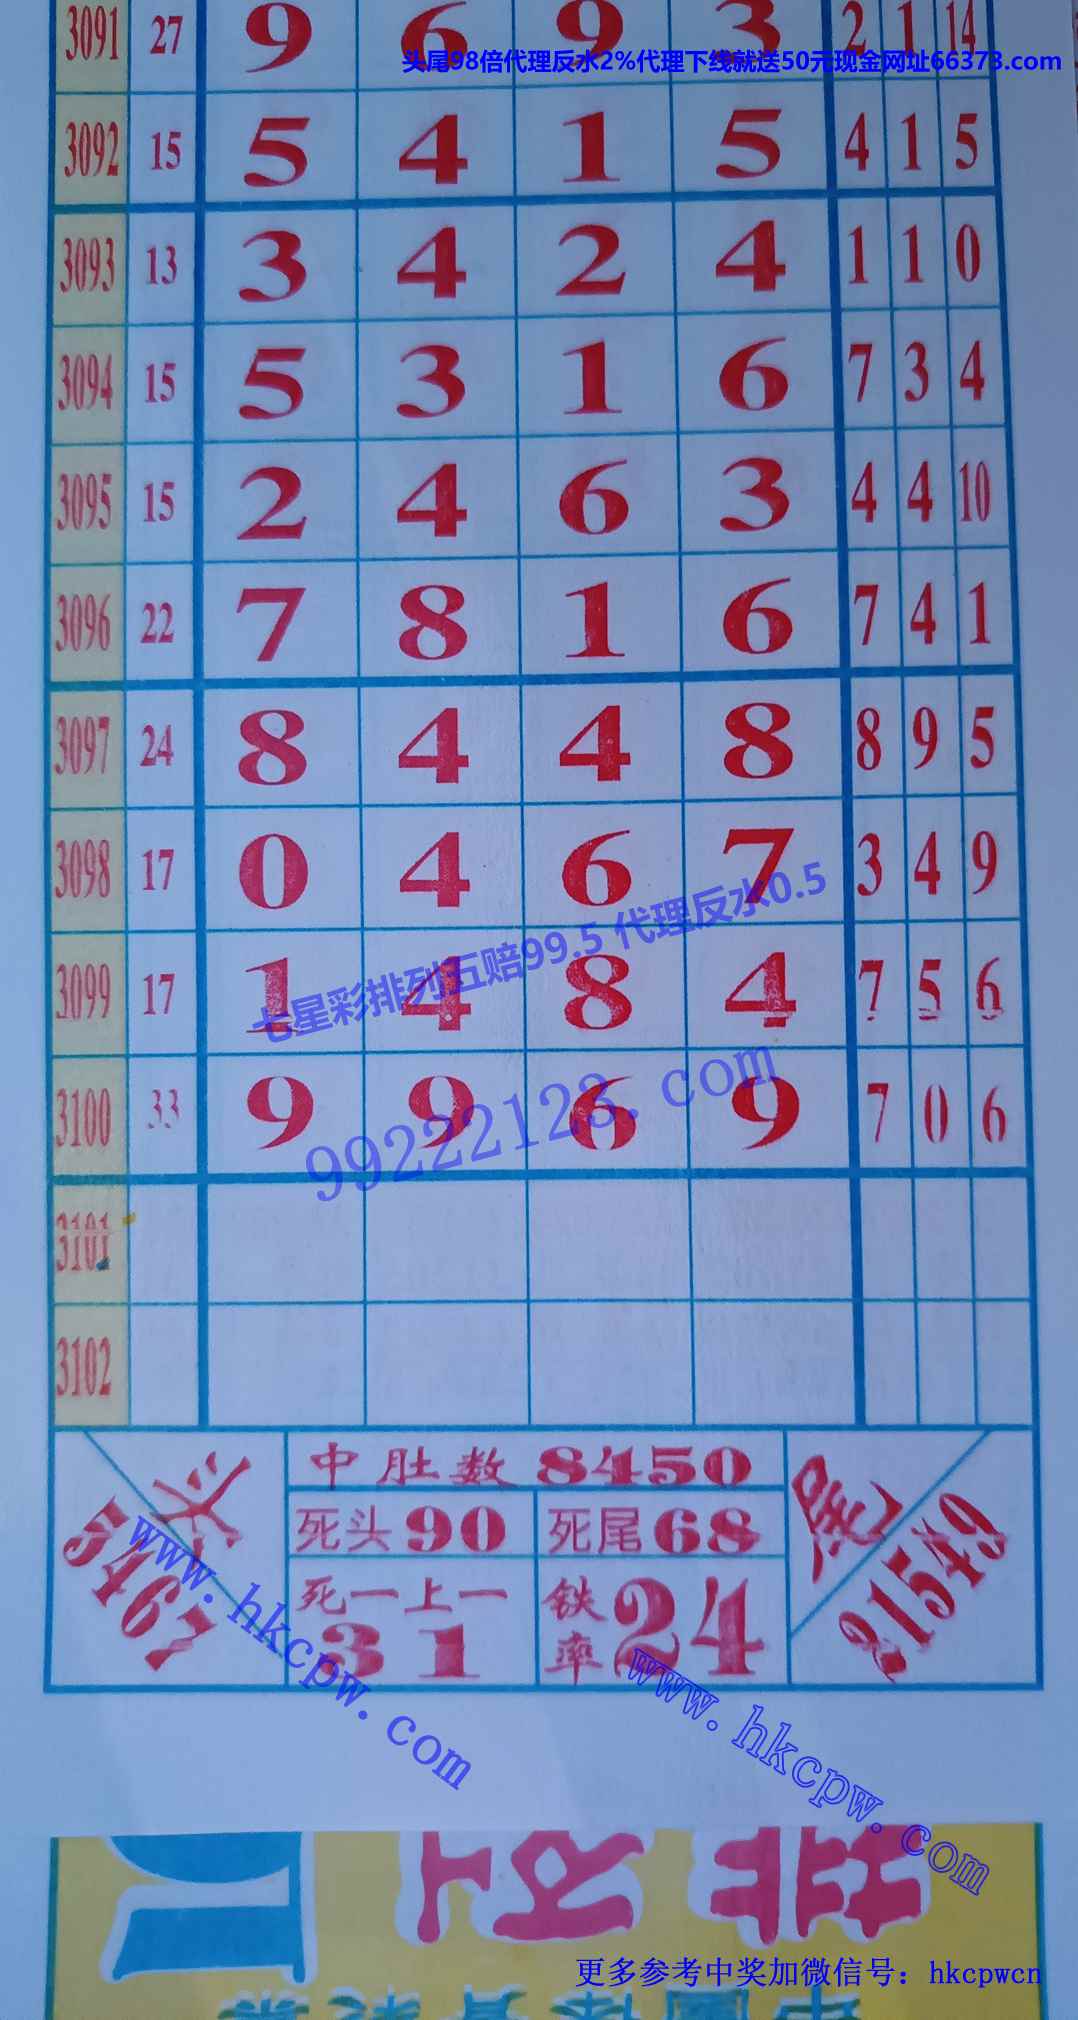 3091 27 9 6 9 3 2 1 14
头尾98倍代理反水2%代理下线就送50元现金网址66373.com
3092 15 5 4 1 5 4 1 5
3093 13 3 4 2 4 1 1 0
3094 15 5 3 1 6 7 3 4
3095 15 2 4 6 3 4 4 10
3096 22 7 8 1 6 7 4 1
3097 24 8 4 4 8 8 9 5
3098 17 0 4 6 7 3 4 9
七星彩排列五赔99.5 代理反水0.5
3099 17 1 4 8 4 7 5 6
3100 33 9 9 6 9 7 0 6
99222123.com
3101
3102
头 5467
中肚数 8450
死头90 死尾68
死一上一 31
铁率24
尾 21549
www.hkcpw.com
www.hkcpw.com
排列
更多参考中奖加微信号：hkcpwcn